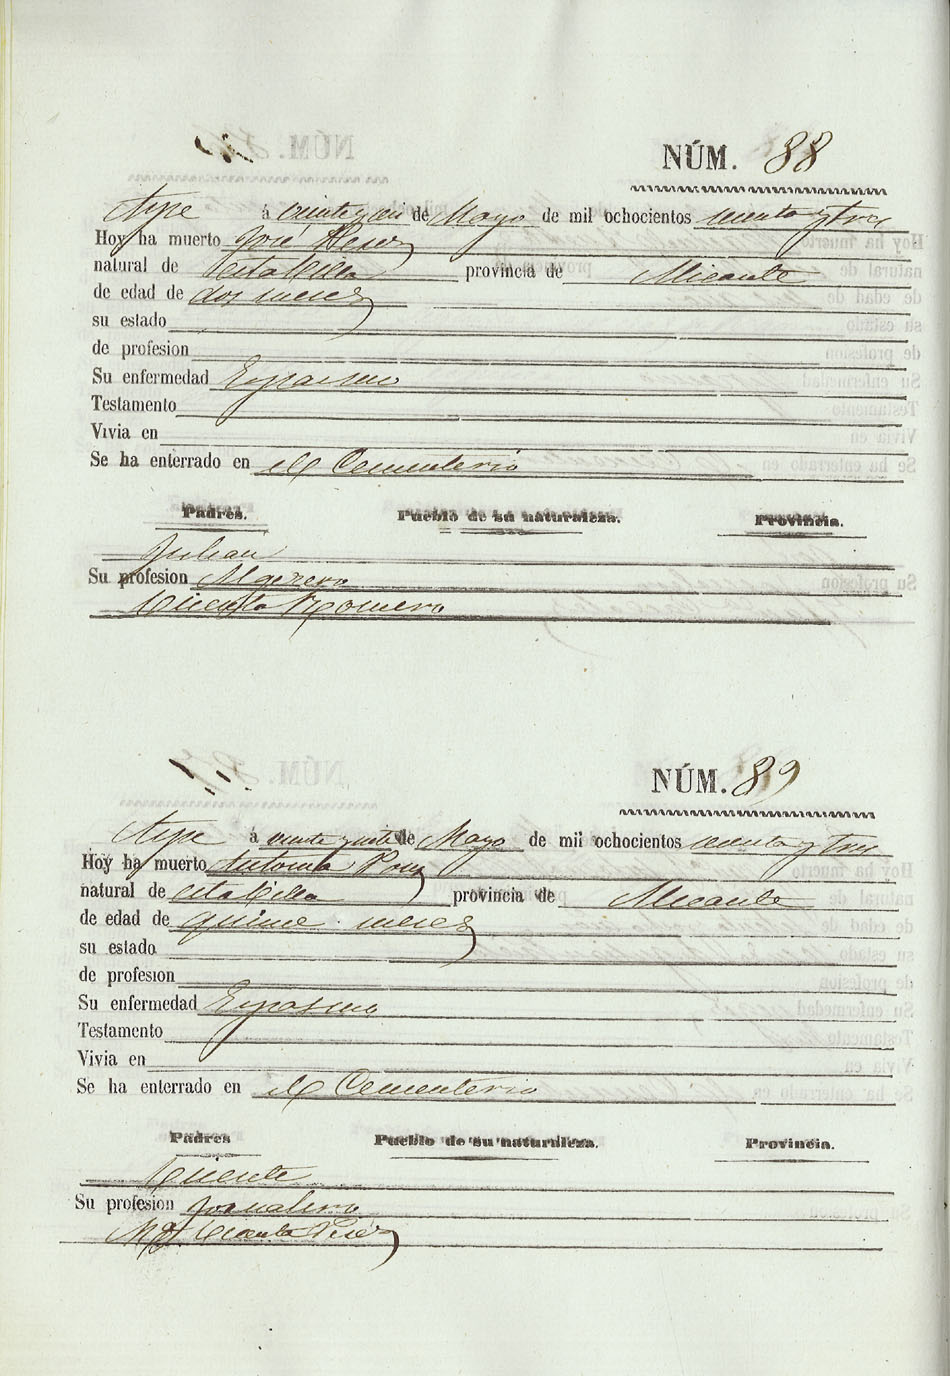 NÚM. 88
Aspe á veinte y seis de Mayo de mil ochocientos sesenta y tres
Hoy ha muerto José Perez
natural de esta Villa provincia de Alicante
de edad de dos meses
su estado
de profesion
Su enfermedad Espasmo
Testamento
Vivia en
Se ha enterrado en el Cementerio
Padres. Pueblo de su naturaleza. Provincia.
Julian
Su profesion
Vicenta Romero
NÚM. 89
Aspe á veinte y siete de Mayo de mil ochocientos sesenta y tres
Hoy ha muerto Antonia Pons
natural de esta Villa provincia de Alicante
de edad de quince meses
su estado
de profesion
Su enfermedad Espasmo
Testamento
Vivia en
Se ha enterrado en el Cementerio
Padres Pueblo de su naturaleza. Provincia.
Vicente
Su profesion Jornalero
Vicenta Perez